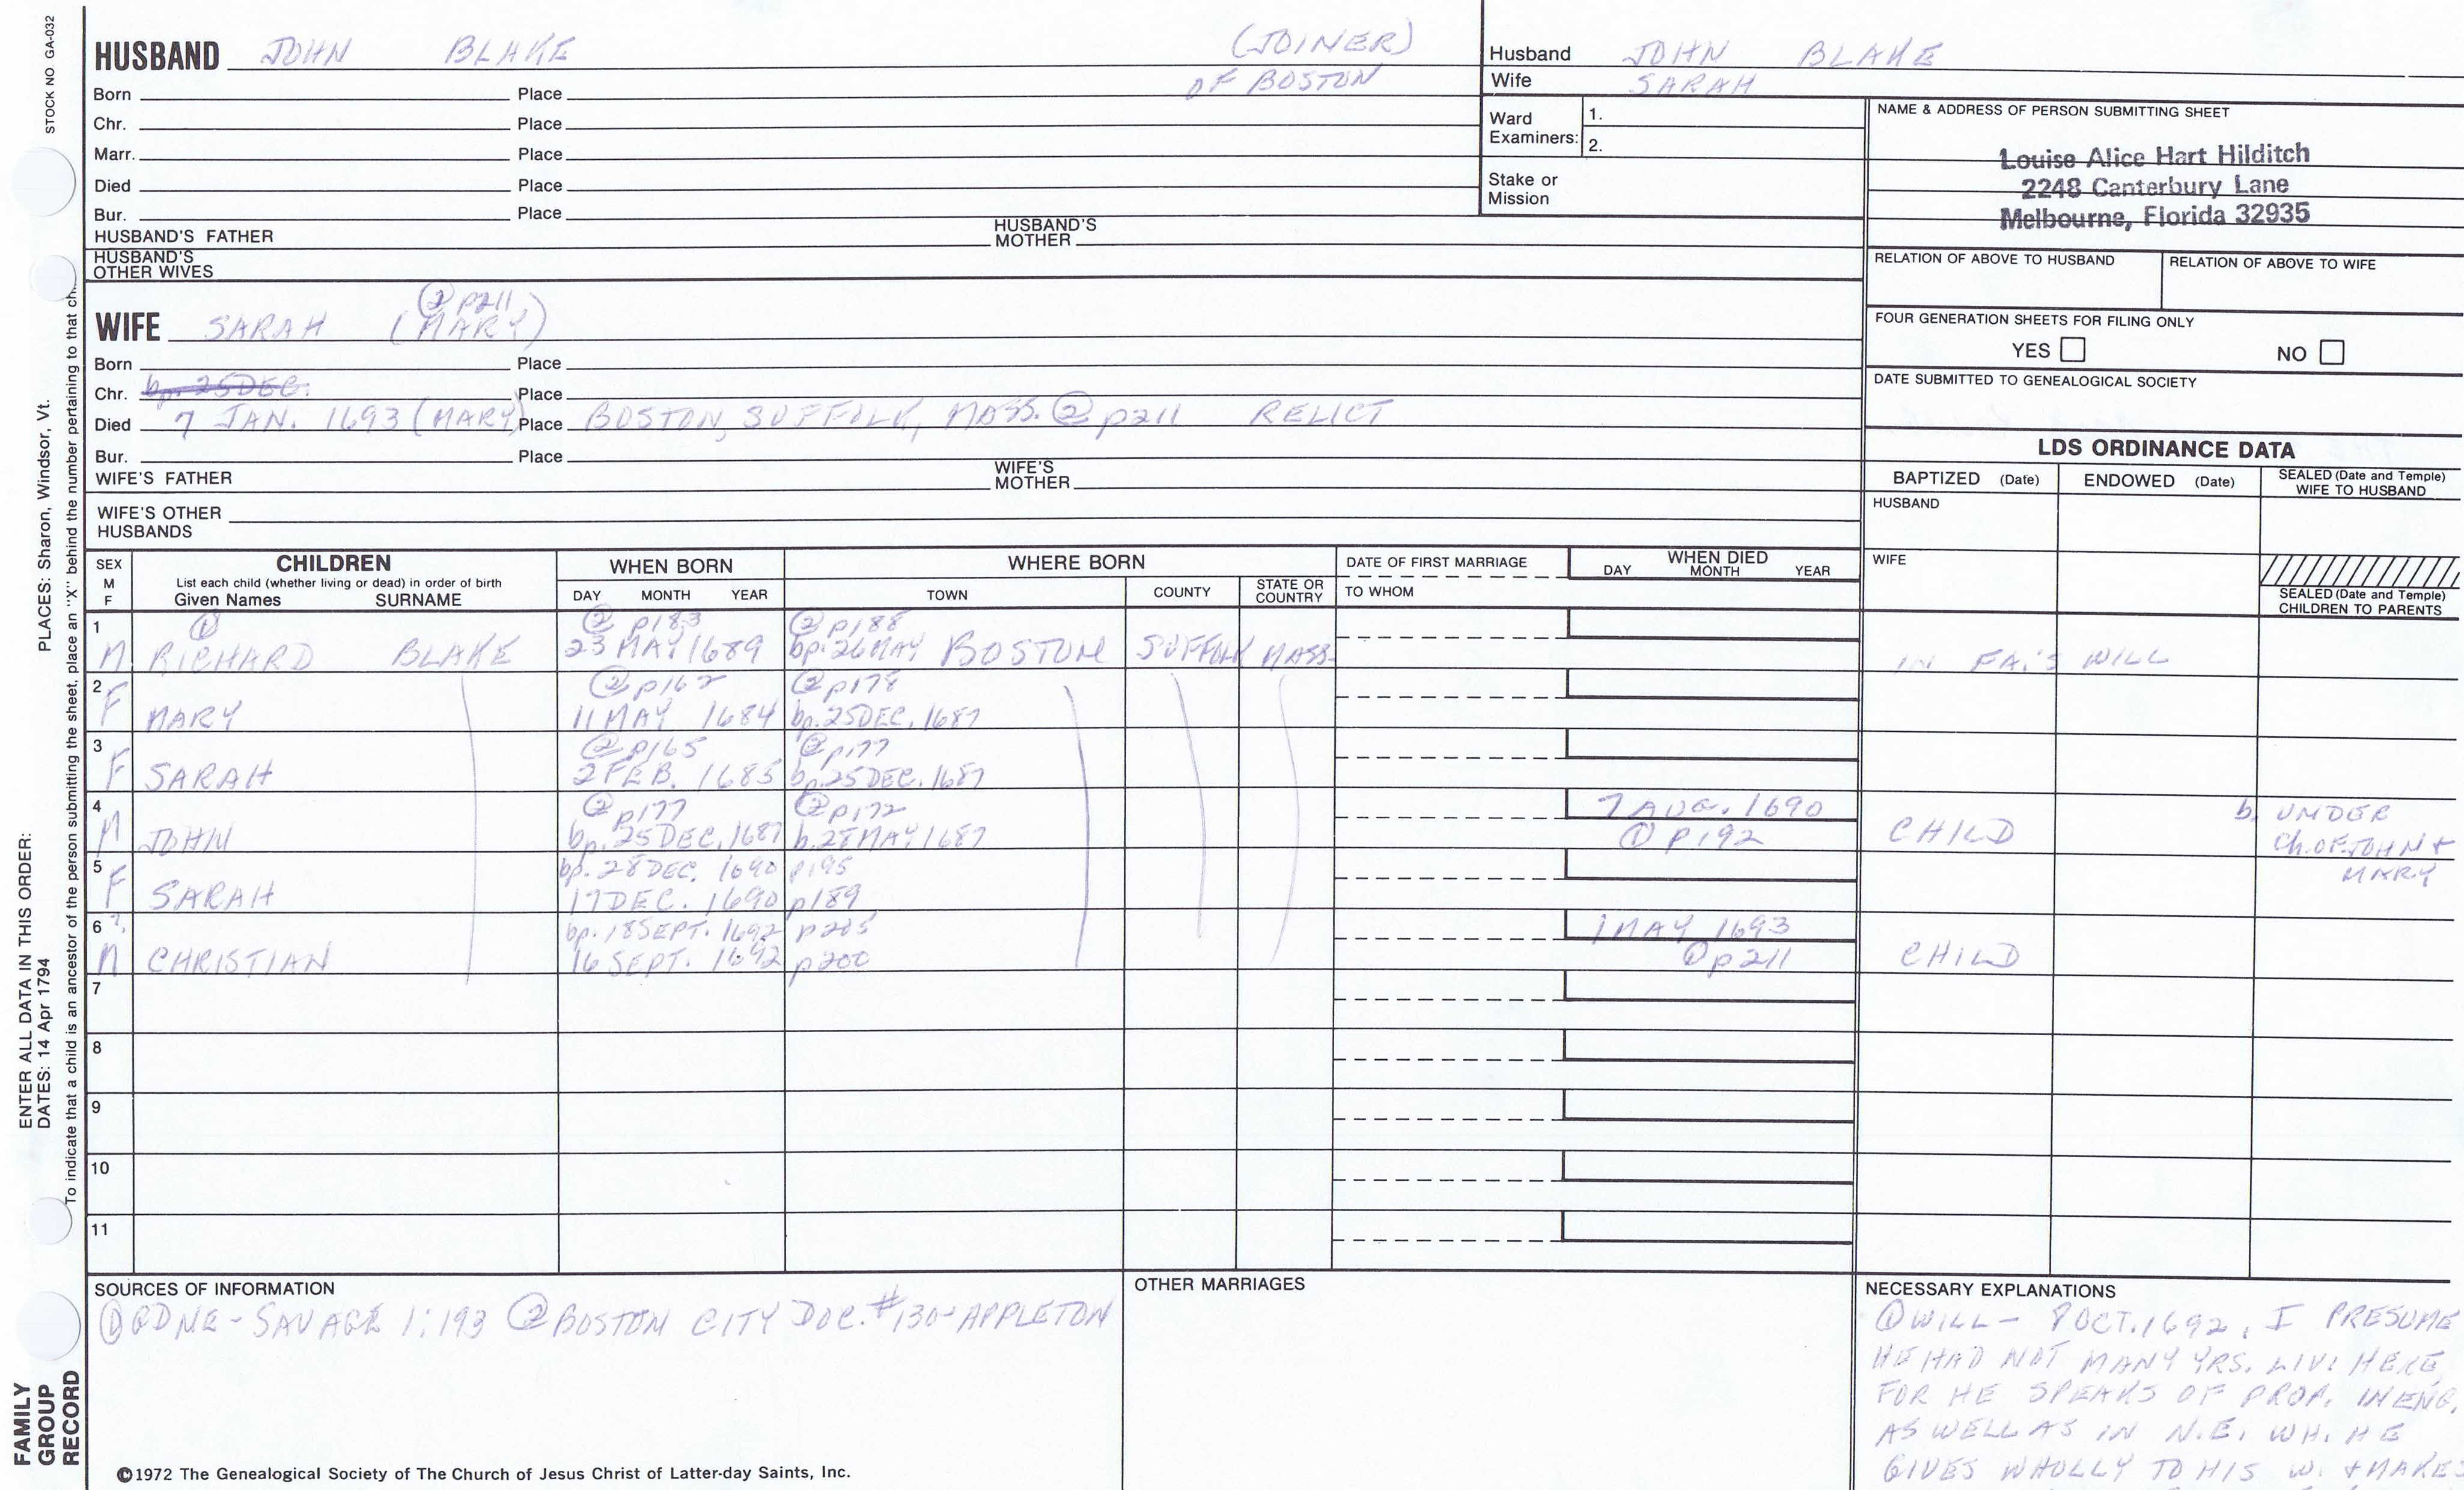 STOCK NO GA-032
HUSBAND JOHN BLAKE (JOINER)
OF BOSTON
Born Place
Chr. Place
Marr. Place
Died Place
Bur. Place
HUSBAND'S FATHER HUSBAND'S MOTHER
HUSBAND'S OTHER WIVES
Husband JOHN BLAKE
Wife SARAH
Ward Examiners: 1.
2.
Stake or Mission
NAME & ADDRESS OF PERSON SUBMITTING SHEET
Louise Alice Hart Hilditch
2248 Canterbury Lane
Melbourne, Florida 32935
RELATION OF ABOVE TO HUSBAND RELATION OF ABOVE TO WIFE
FOUR GENERATION SHEETS FOR FILING ONLY
YES NO
DATE SUBMITTED TO GENEALOGICAL SOCIETY
② p211
WIFE SARAH (MARY)
Born Place
Chr. bp. 25 DEC. Place
Died 7 JAN. 1693 (MARY) Place BOSTON, SUFFOLK, MASS. ② p211 RELICT
Bur. Place
WIFE'S FATHER WIFE'S MOTHER
WIFE'S OTHER HUSBANDS
LDS ORDINANCE DATA
BAPTIZED (Date) ENDOWED (Date) SEALED (Date and Temple) WIFE TO HUSBAND
HUSBAND
WIFE
SEALED (Date and Temple) CHILDREN TO PARENTS
SEX M F
CHILDREN
List each child (whether living or dead) in order of birth
Given Names SURNAME
WHEN BORN
DAY MONTH YEAR
WHERE BORN
TOWN COUNTY STATE OR COUNTRY
DATE OF FIRST MARRIAGE
TO WHOM
WHEN DIED
DAY MONTH YEAR
1 ① ② p183 ② p188
M RICHARD BLAKE 23 MAY 1689 bp. 26 MAY BOSTON SUFFOLK MASS. IN FA.'S WILL
2 ② p162 ② p178
F MARY 11 MAY 1684 bp. 25 DEC. 1687
3 ② p165 ② p177
F SARAH 2 FEB. 1685 bp. 25 DEC. 1687
4 ② p177 ② p172 7 AUG. 1690 b. UNDER
M JOHN bp. 25 DEC. 1687 b. 28 MAY 1687 ① p192 CHILD Ch. OF JOHN + MARY
5 bp. 28 DEC. 1690 p195
F SARAH 17 DEC. 1690 p189
6 ?. bp. 18 SEPT. 1692 p205 1 MAY 1693
M CHRISTIAN 16 SEPT. 1692 p200 ① p211 CHILD
7
8
9
10
11
SOURCES OF INFORMATION
① GDNE - SAVAGE 1:193 ② BOSTON CITY DOC. #130 - APPLETON
OTHER MARRIAGES
NECESSARY EXPLANATIONS
① WILL - 8 OCT. 1692, I PRESUME
HE HAD NOT MANY YRS. LIV. HERE,
FOR HE SPEAKS OF PROP. IN ENG.
AS WELL AS IN N.E. WH. HE
GIVES WHOLLY TO HIS W. + MAKES
©1972 The Genealogical Society of The Church of Jesus Christ of Latter-day Saints, Inc.
FAMILY GROUP RECORD
ENTER ALL DATA IN THIS ORDER:
DATES: 14 Apr 1794 PLACES: Sharon, Windsor, Vt.
To indicate that a child is an ancestor of the person submitting the sheet, place an "X" behind the number pertaining to that ch